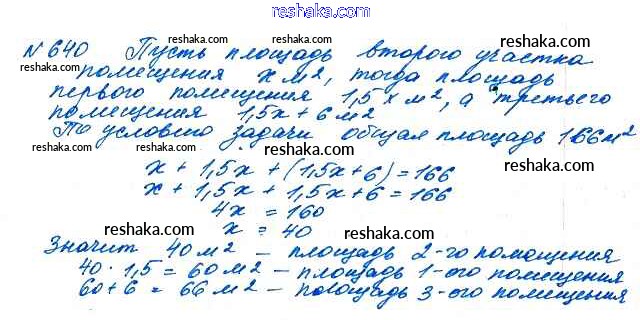 reshaka.com
№640 Пусть площадь второго участка
помещения x м², тогда площадь
первого помещения 1,5x м², а третьего
помещения 1,5x + 6 м²
По условию задачи общая площадь 166 м²
x + 1,5x + (1,5x + 6) = 166
x + 1,5x + 1,5x + 6 = 166
4x = 160
x = 40
Значит 40 м² — площадь 2-го помещения
40 · 1,5 = 60 м² — площадь 1-ого помещения
60 + 6 = 66 м² — площадь 3-ого помещения
reshaka.com
reshaka.com
reshaka.com
reshaka.com
reshaka.com
reshaka.com
reshaka.com
reshaka.com
reshaka.com